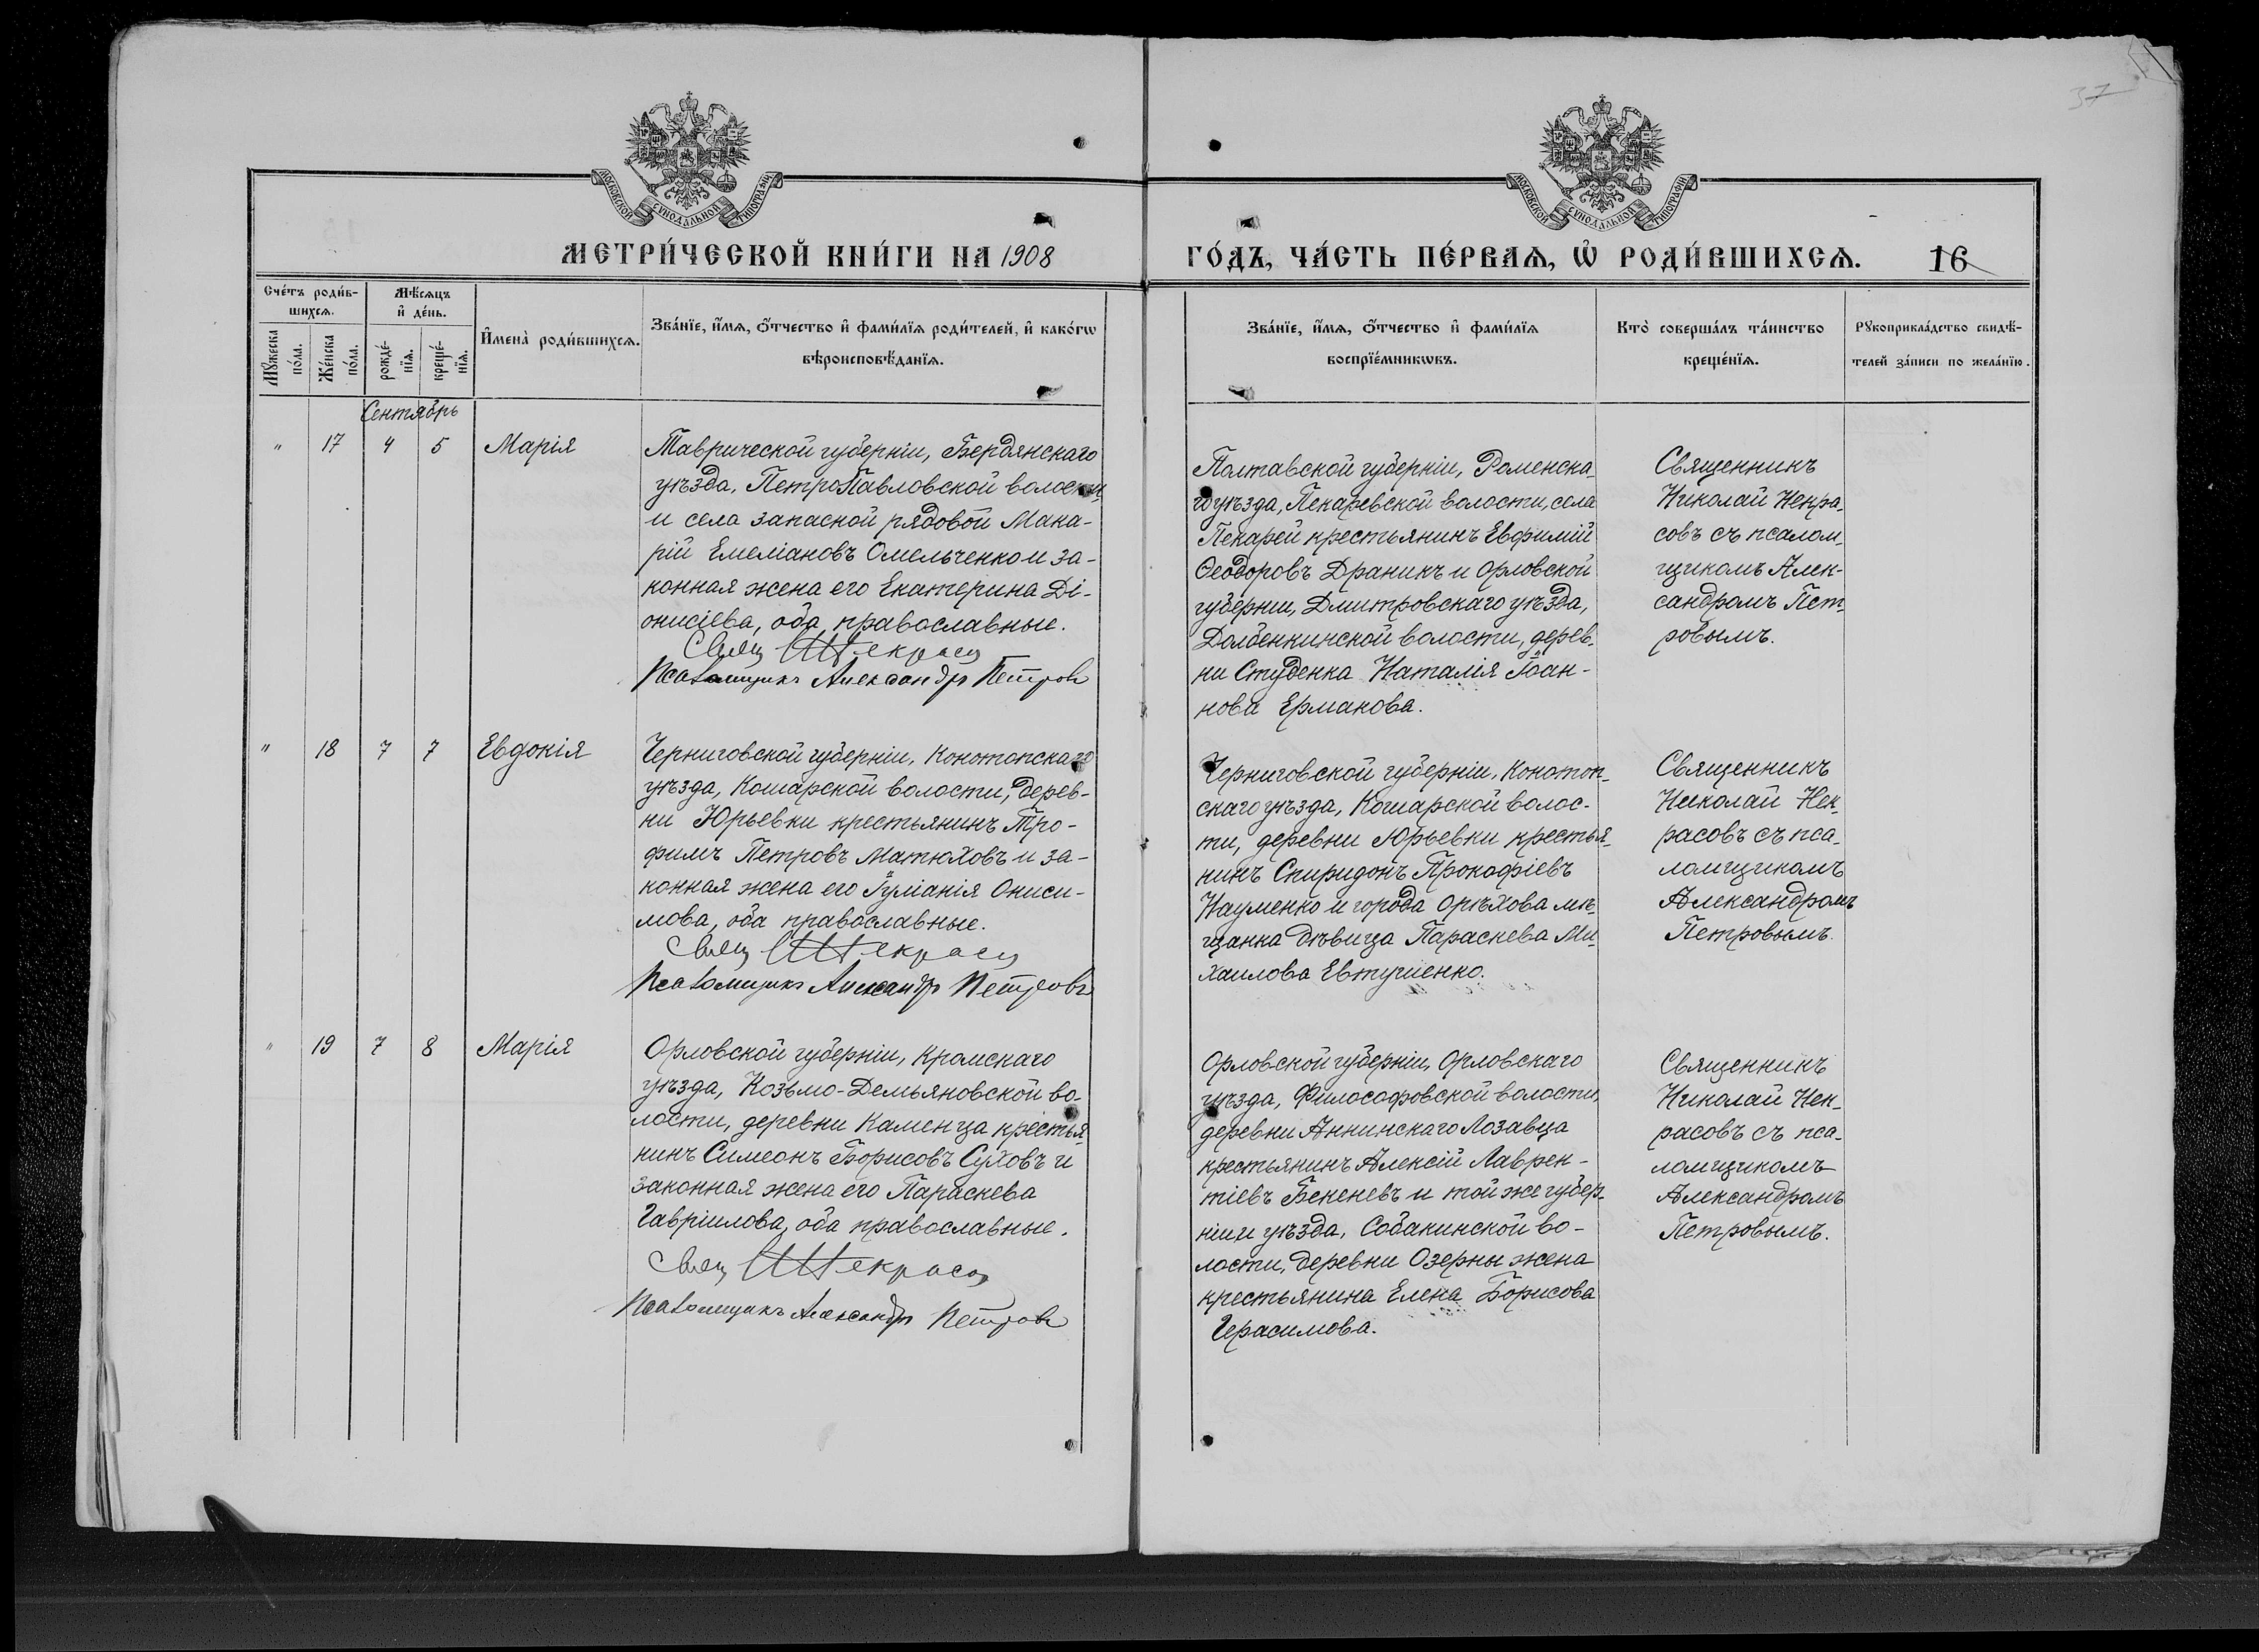 37
МОСКОВСКОЙ СУНОДАЛЬНОЙ ТИПОГРАФІИ
МОСКОВСКОЙ СУНОДАЛЬНОЙ ТИПОГРАФІИ
МЕТРИ́ЧЕСКОЙ КНИ́ГИ НА 1908
ГО́ДЪ, ЧА́СТЬ ПЕ́РВАѦ, Ѡ҆ РОДИ́ВШИХСѦ. 16
Сче́тъ роди́в-
шихсѧ.
Мꙋ́жеска по́ла.
Же́нска по́ла.
Мѣ́сѧцъ
и҆ де́нь.
рожде́-
нїѧ.
креще́-
нїѧ.
И҆мена̀ роди́вшихсѧ.
Зва́нїе, и҆́мѧ, ѻ҆́тчество и҆ фами́лїѧ роди́телей, и҆ како́гѡ
вѣроисповѣ́данїѧ.
Зва́нїе, и҆́мѧ, ѻ҆́тчество и҆ фами́лїѧ
воспрїе́мникѡвъ.
Кто̀ соверша́лъ та́инство
креще́нїѧ.
Рꙋкоприкла́дство свидѣ́-
телей за́писи по жела́нїю.
Сентябрь
" 17 4 5 Марія
Таврической губерніи, Бердянскаго
уѣзда, ПетроПавловской волости
и села запасной рядовой Мака-
рій Емеліановъ Омельченко и за-
конная жена его Екатерина Ді-
онисіева, оба православные.
Свящ Н Некрасо
Псаломщикъ Александръ Петровъ
Полтавской губерніи, Роменска-
го уѣзда, Пекаревской волости, села
Пекарей крестьянинъ Евфимій
Ѳеодоровъ Драникъ и Орловской
губерніи, Дмитровскаго уѣзда,
Долбенкинской волости, дерев-
ни Студенка Наталія Іоан-
нова Ермакова.
Священникъ
Николай Некра-
совъ съ псалом-
щикомъ Алек-
сандромъ Пет-
ровымъ.
" 18 7 7 Евдокія
Черниговской губерніи, Конотопскаго
уѣзда, Кошарской волости, дерев-
ни Юрьевки крестьянинъ Тро-
фимъ Петровъ Матюховъ и за-
конная жена его Іуліанія Ониси-
мова, оба православные.
Свящ Н Некрасо
Псаломщикъ Александръ Петровъ
Черниговской губерніи, Конотоп-
скаго уѣзда, Кошарской волос-
ти, деревни Юрьевки крестья-
нинъ Спиридонъ Прокофіевъ
Науменко и города Орѣхова мѣ-
щанка дѣвица Параскева Ми-
хаилова Евтушенко.
Священникъ
Николай Нек-
расовъ съ пса-
ломщикомъ
Александромъ
Петровымъ.
" 19 7 8 Марія
Орловской губерніи, Кромскаго
уѣзда, Козьмо-Демьяновской во-
лости, деревни Каменца крестья-
нинъ Симеонъ Борисовъ Суховъ и
законная жена его Параскева
Гавріилова, оба православные.
Свящ Н Некрасо
Псаломщикъ Александръ Петровъ
Орловской губерніи, Орловскаго
уѣзда, Философовской волости,
деревни Аннинскаго Лозавца
крестьянинъ Алексій Лаврен-
тіевъ Бекеневъ и той же губер-
ніи и уѣзда, Собакинской во-
лости, деревни Озерны жена
крестьянина Елена Борисова
Герасимова.
Священникъ
Николай Нек-
расовъ съ пса-
ломщикомъ
Александромъ
Петровымъ.